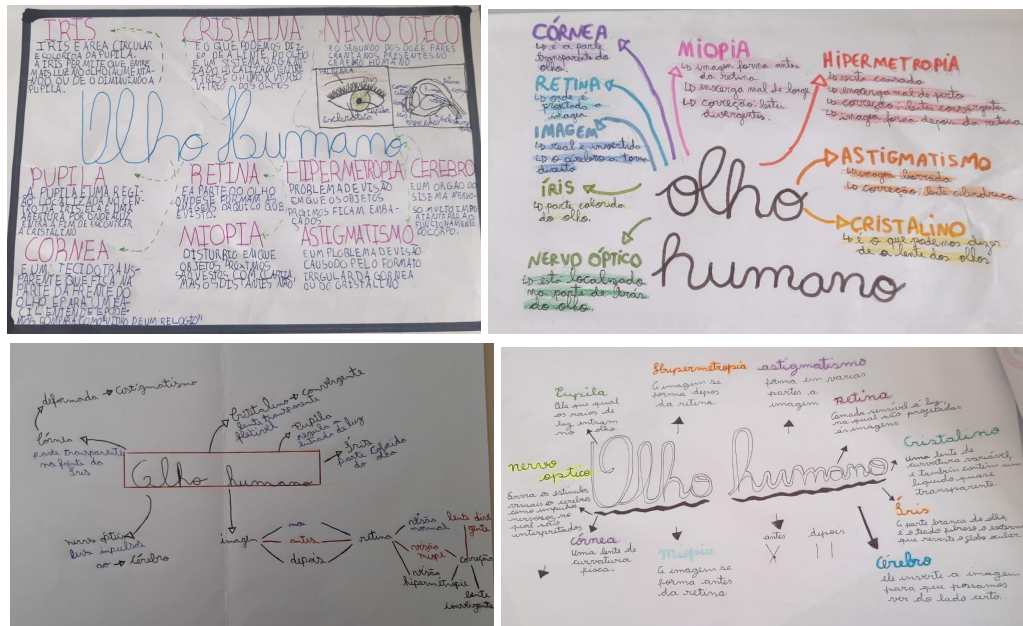 IRIS
IRIS E AREA CIRCULAR
E COLORIDA DA PUPILA.
A IRIS PERMITE QUE ENTRE
MAIS LUZ NO OLHO AUMENTA-
NDO OU DE O DIMINUINDO A
PUPILA.
CRISTALINA
E O QUE PODEMOS DIZ-
ER DE A LENTE DO OLHO
E UM SISTEMA
LOCALIZADO
O HUMOR VITREO
DOS OLHOS
NERVO OTICO
E O SEGUNDO DOS DOZE PARES
CRANIANOS PRESENTES NO
CEREBRO HUMANO
Olho Humano
PUPILA
A PUPILA E UMA REGI-
ÃO LOCALIZADA NO CEN-
TRO DA IRIS, ELA E UMA
ABERTURA POR ONDE A LUZ
ENTRA A FIM DE ENCONTRAR
A CRISTALINO
RETINA
E A PARTE DO OLHO
ONDE SE FORMAM AS
IMAGENS DAQUILO QUE
E VISTO.
HIPERMETROPIA
PROBLEMA DE VISÃO
EM QUE OS OBJETOS
PROXIMOS FICAM EMBA-
ÇADOS
CEREBRO
E UM ORGÃO DO
SISTEMA NERVO-
SO MUITO IMPO
RTANTE PARA O
FUNCIONAMENTO
DO CORPO.
CORNEA
E UM "TECIDO TRANS-
PARENTE QUE FICA NA
PARTE DA FRENTE DO
OLHO E PARA UM FA-
CIL ENTENDE PODE-
MOS COMPARA COMO VIDRO DE UM RELOGIO"
MIOPIA
DISTURBIO EM QUE
OBJETOS PROXIMOS
SÃO VISTOS COM CLAREZA
MAS OS DISTANTES NÃO
ASTIGMATISMO
E UM PLOBLEMA DE VISÃO
CAUSODO PELO FORMATO
IRREGULAR DA CORNEA
OU DO CRISTALINO
CÓRNEA
↳ é a parte
transparente do
olho.
RETINA
↳ onde é
projetada a
imagem.
IMAGEM
↳ real e invertida
↳ o cérebro a torna
direita
ÍRIS
↳ parte colorida
do olho.
NERVO ÓPTICO
↳ esta localizado
na parte de trás
do olho.
MIOPIA
↳ imagem forma antes
da retina
↳ enxerga mal de longe
↳ correção: lentes
divergentes.
HIPERMETROPIA
↳ vista cansada
↳ enxerga mal de perto
↳ correção: lentes convergentes
↳ imagem forma depois da retina
ASTIGMATISMO
↳ imagem borrada
↳ correção: lente cilíndrica
CRISTALINO
↳ é o que podemos dizer
de a lente dos olhos
olho
humano
deformada → astigmatismo
Córnea
parte transparente
na frente da
Íris
Cristalino → convergente
lente transparente
flexível
Pupila
regula a
entrada de luz
Íris
parte colorida
do olho
Olho humano
nervo óptico
leva impulsos
ao → Cérebro
imagem
na
antes
depois
retina
visão
normal
visão
míope
visão
hipermétrope
lente diver
gente
correção
lente
convergente
Pupila
Pele qual
os raios de
luz entram
no olho
Hypermetropia
A imagem se
forma depois
da retina
astigmatismo
forma em varias
partes a
imagem
retina
Camada sensível á luz,
na qual são projetadas
as imagens
nervo
optico
Envia os estímulos
visuais ao cérebro
como impulsos
nervosos, no
qual são
interpretados
Olho humano
Cristalino
Uma lente de
curvatura variável,
e também contém um
líquido quase
transparente.
Íris
A parte branca do olho,
é o tecido fibroso e externo
que reveste o globo ocular.
Córnea
Uma lente de
curvatura
fisca.
Miopia
A imagem se
forma antes
da retina
antes
depois
Cérebro
ele inverte a imagem
para que possamos
ver do lado certo.